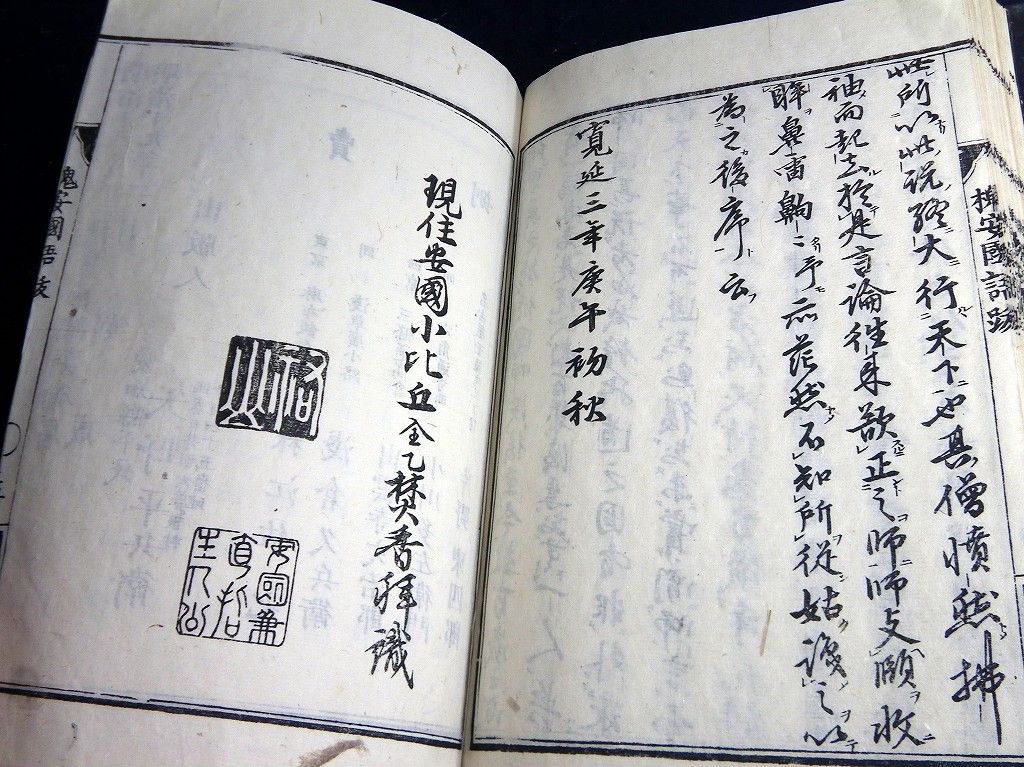 槐安國語跋
此所以此説終大行天下也其僧憤然拂
袖而起去於是言論往来欲正之師師支頤收
眸鼻雷齁〻予亦茫然不知所從姑之以
為之後序云
寛延三年庚午初秋
現住安國小比丘全乙焚香拜識
槐安國語跋